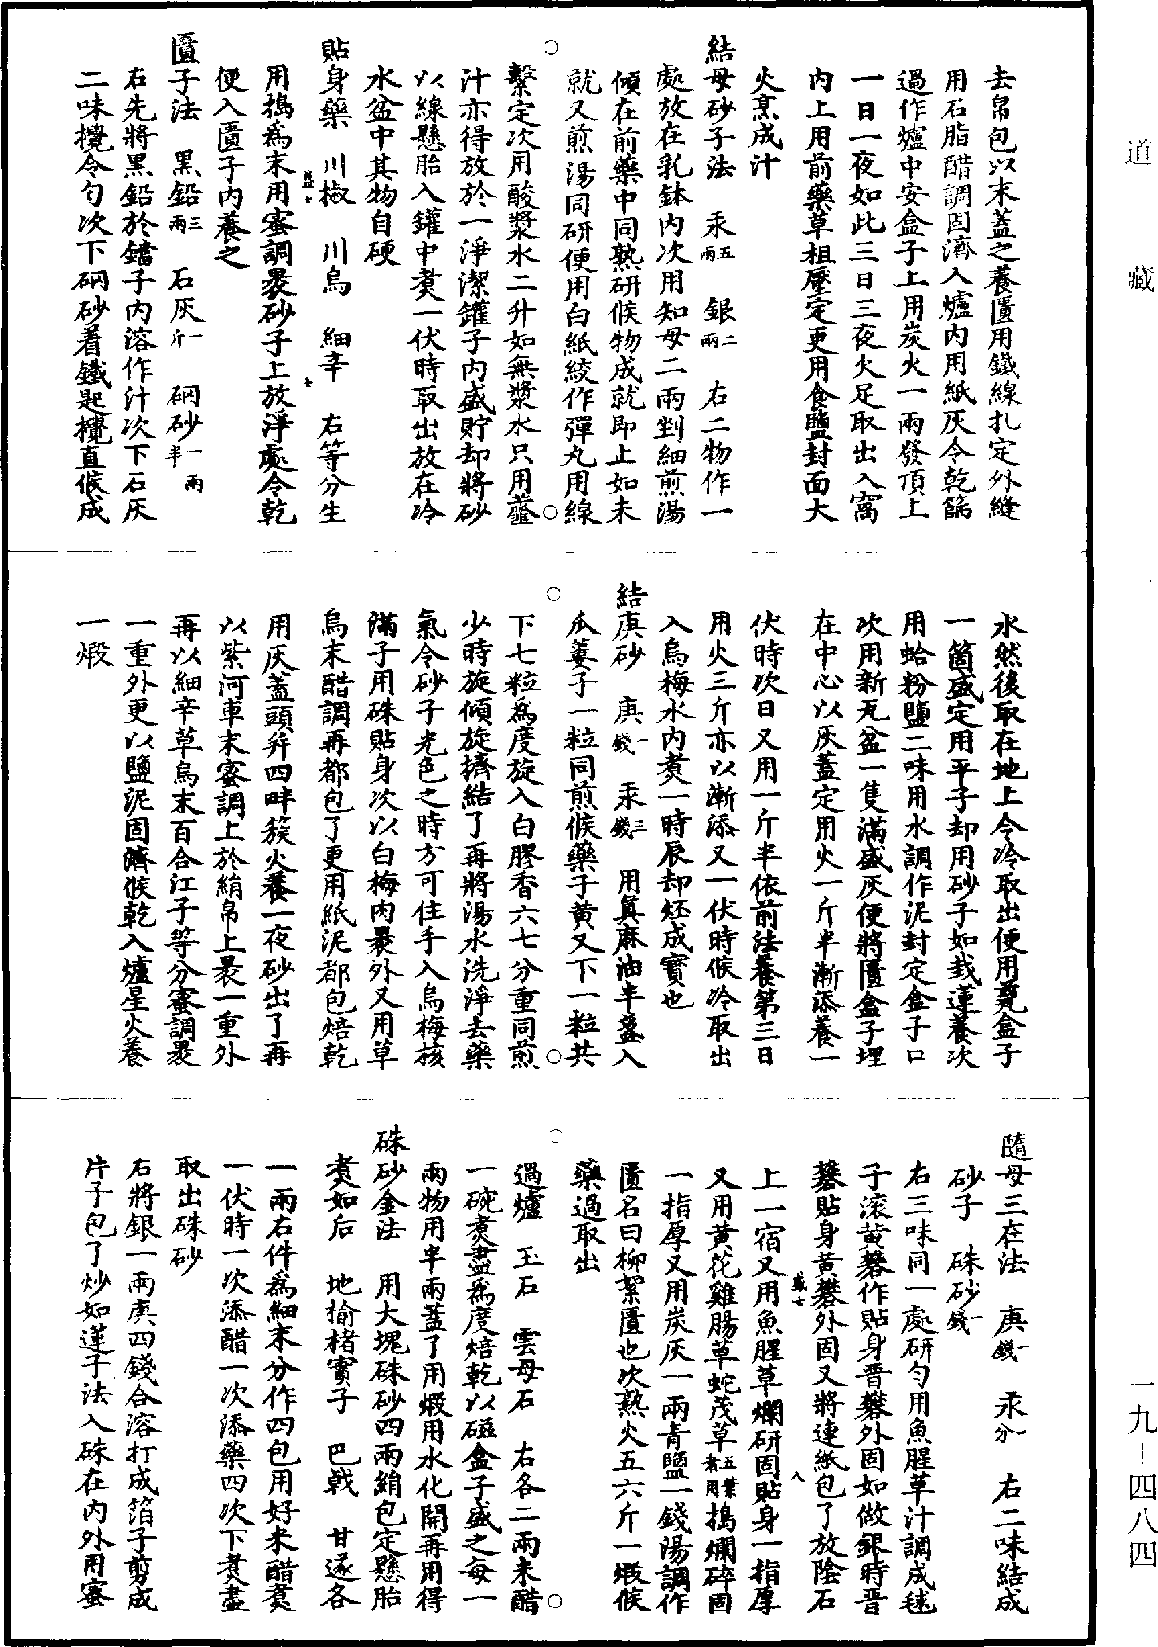 道藏
一九—四八四
去帛包以末蓋之養匱用鐵線扎定外縫
用石脂醋調固濟入爐內用紙灰令乾篩
過作爐中安盒子上用炭火一兩發頂上
一日一夜如此三日三夜火足取出入窩
內上用前藥草柤壓定更用食鹽封面大
火烹成汁
結母砂子法 汞五兩 銀二兩 右二物作一
處放在乳鉢內次用知母二兩剉細煎湯
傾在前藥中同熟研候物成就即上如未
就又煎湯同研便用白紙絞作彈丸用線
繫定次用酸漿水二升如無漿水只用虀
汁亦得放於一淨潔鑵子內盛貯却將砂
以線懸胎入鑵中煑一伏時取出放在冷
水盆中其物自硬
貼身藥 川椒 川烏 細辛 右等分生
用搗為末用蜜調裹砂子上放淨處令乾
便入匱子內養之
匱子法 黑鉛三兩 石灰一斤 硇砂一兩半
右先將黑鉛於鐺子內溶作汁次下石灰
二味攪令勻次下硇砂着鐵匙攪直候成
水然後取在地上令冷取出便用甆盒子
一箇盛定用平子却用砂子如栽蓮養次
用蛤粉鹽二味用水調作泥封定盒子口
次用新瓦盆一隻滿盛灰便將匱盒子埋
在中心以灰蓋定用火一斤半漸添養一
伏時次日又用一斤半依前法養第三日
用火三斤亦以漸添又一伏時候冷取出
入烏梅水內煑一時辰却坯成寳也
結庚砂 庚一錢 汞三錢 用真麻油半盞入
瓜蔞子一粒同煎候藥子黃又下一粒共
下七粒為度旋入白膠香六七分重同煎
少時旋傾旋擠結了再將湯水洗淨去藥
氣令砂子光色之時方可住手入烏梅核
滿子用硃貼身次以白梅肉裹外又用草
烏末醋調再都包了更用紙泥都包焙乾
用灰蓋頭并四畔簇火養一夜砂出了再
以紫河車末蜜調上於絹帛上裹一重外
再以細辛草烏末百合江子等分蜜調裹
一重外更以鹽泥固濟候乾入爐星火養
一煅
隨母三在法 庚一錢 汞一分 右二味結成
砂子 硃砂一錢
右三味同一處研勻用魚腥草汁調成毬
子滾黃礬作貼身晋礬外固如做銀時晋
礬貼身黃礬外固又將連紙包了放陰石
上一宿又用魚腥草爛研固貼身一指厚
又用黃花雞腸草蛇茂草五葉者用搗爛碎固
一指厚又用炭灰一兩青鹽一錢陽調作
匱名曰柳絮匱也次熟火五六斤一煅候
藥過取出
過爐 玉石 雲母石 右各二兩米醋
一碗煑盡為度焙乾以磁盒子盛之每一
兩物用半兩蓋了用煅用水化開再用得
硃砂金法 用大塊硃砂四兩絹包定懸胎
煑如后 地揄楮實子 巴戟 甘遂各
一兩右件為細末分作四包用好米醋煑
一伏時一次添醋一次添藥四次下煑盡
取出硃砂
右將銀一兩庚四錢合溶打成箔子剪成
片子包了炒如蓮子法入硃在內外用蜜